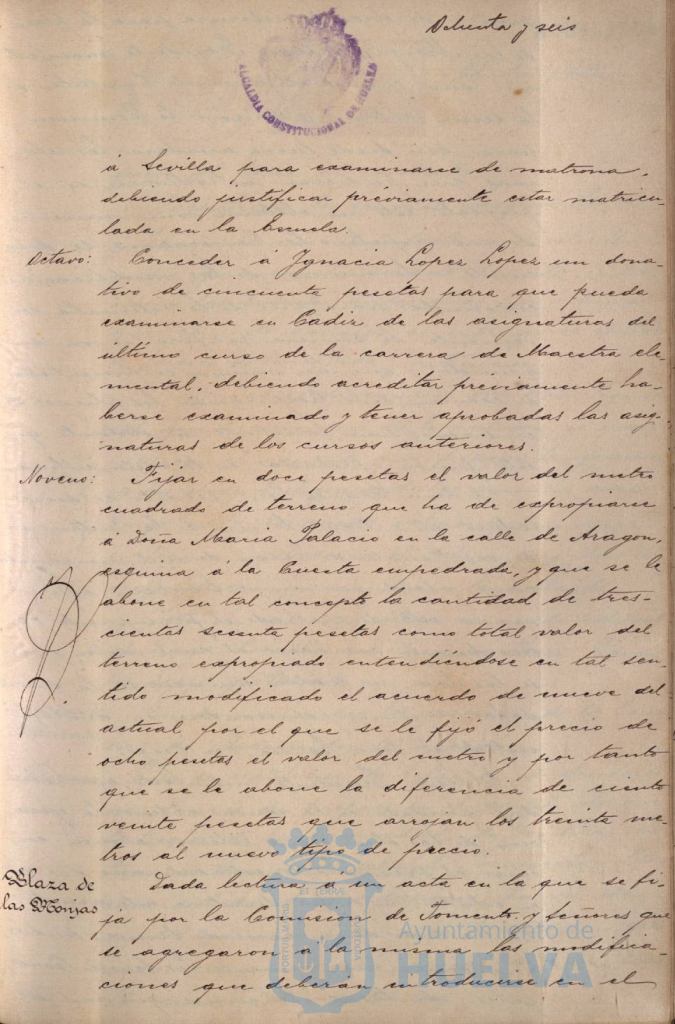 Ochenta y seis
ALCALDIA CONSTITUCIONAL DE HUELVA
á Sevilla para examinarse de matrona,
debiendo justificar préviamente estar matricu-
lada en la Escuela.
Octavo: Conceder á Ygnacia Lopez Lopez un dona-
tivo de cincuenta pesetas para que pueda
examinarse en Cadiz de las asignaturas del
último curso de la carrera de Maestra ele-
mental, debiendo acreditar préviamente ha-
berse examinado y tener aprobadas las asig-
naturas de los cursos anteriores.
Noveno: Fijar en doce pesetas el valor del metro
cuadrado de terreno que ha de expropiarse
á Doña Maria Palacio en la calle de Aragon,
esquina á la Cuesta empedrada, y que se le
abone en tal concepto la cantidad de tres-
cientas sesenta pesetas como total valor del
terreno expropiado entendiéndose en tal sen-
tido modificado el acuerdo de nueve del
actual por el que se le fijó el precio de
ocho pesetas el valor del metro y por tanto
que se le abone la diferencia de ciento
veinte pesetas que arrojan los treinta me-
tros al nuevo tipo de precio.
Plaza de
las Monjas
Dada lectura á un acta en la que se fi-
ja por la Comision de Fomento y señores que
se agregaron á la misma las modifica-
ciones que deberán introducirse en el
Ayuntamiento de
HUELVA